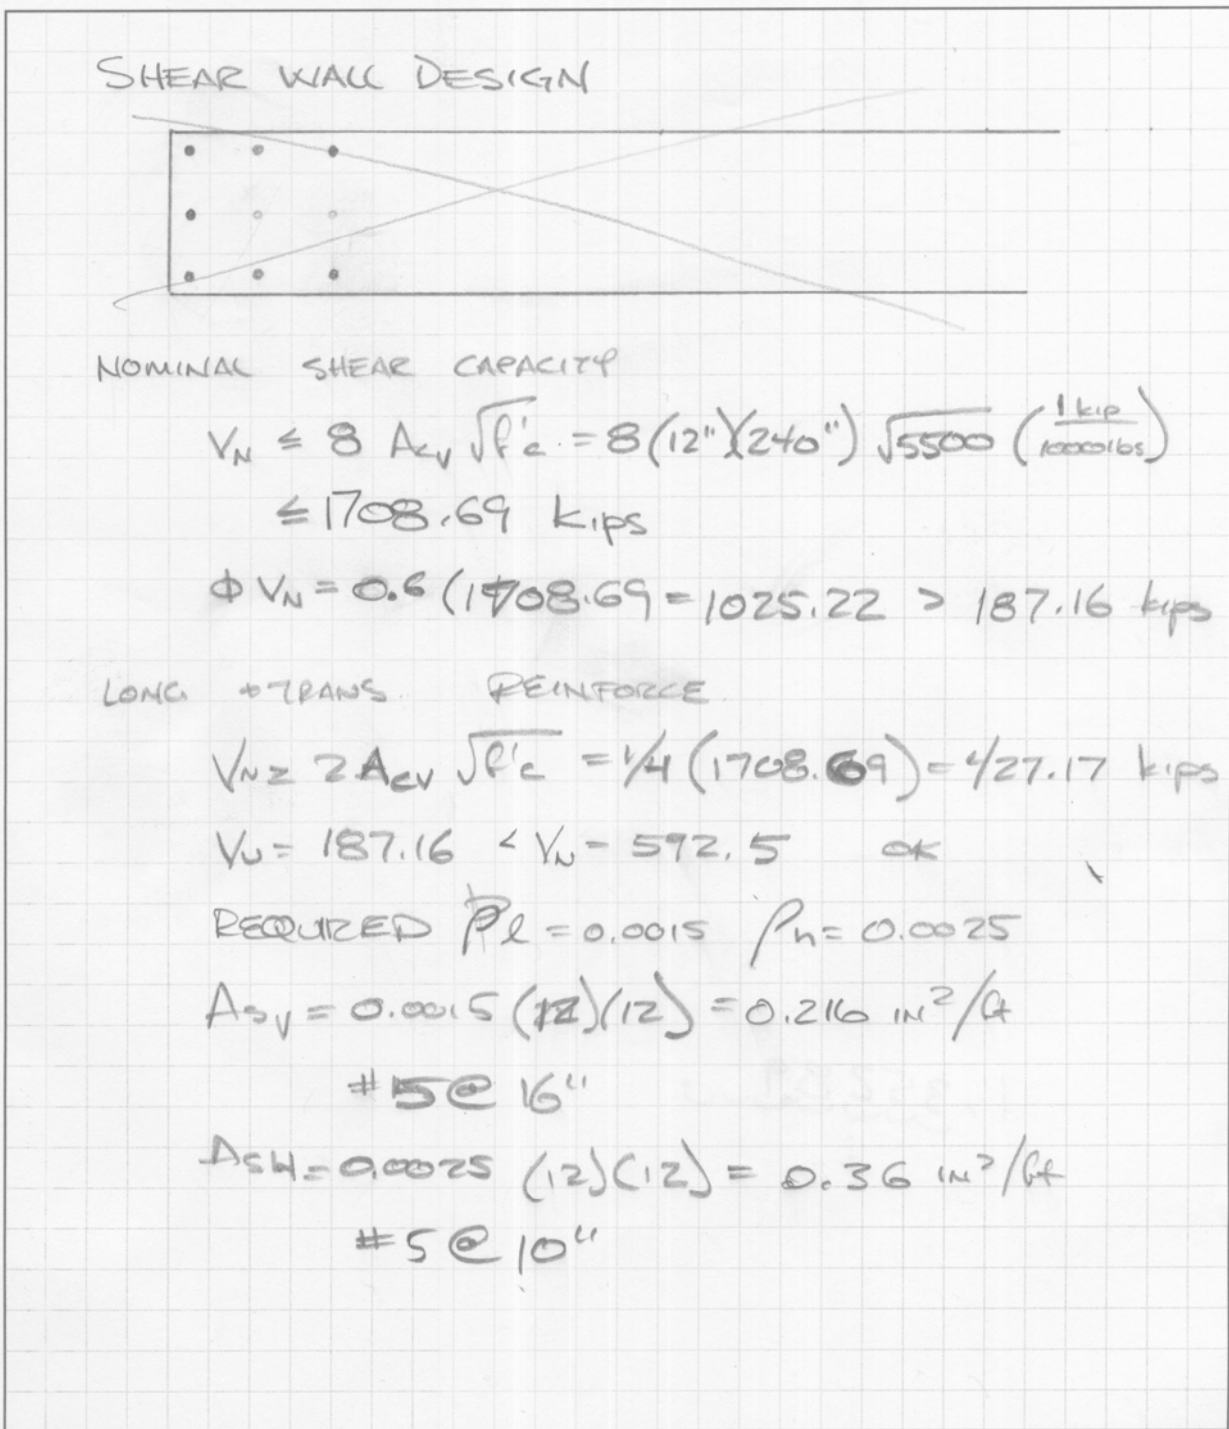 SHEAR WALL DESIGN
NOMINAL SHEAR CAPACITY
V_N ≤ 8 A_cv √f'c = 8(12")(240") √5500 (1 kip/1000 lbs)
≤ 1708.69 kips
Φ V_N = 0.6 (1708.69 = 1025.22 > 187.16 kips
LONG + TRANS. REINFORCE.
V_N = 2 A_cv √f'c = 1/4 (1708.69) = 427.17 kips
V_U = 187.16 < V_N = 592.5 OK
REQUIRED ρl = 0.0015 ρn = 0.0025
A_sv = 0.0015 (12)(12) = 0.216 IN²/ft
#5 @ 16"
A_SH = 0.0025 (12)(12) = 0.36 IN²/ft
#5 @ 10"